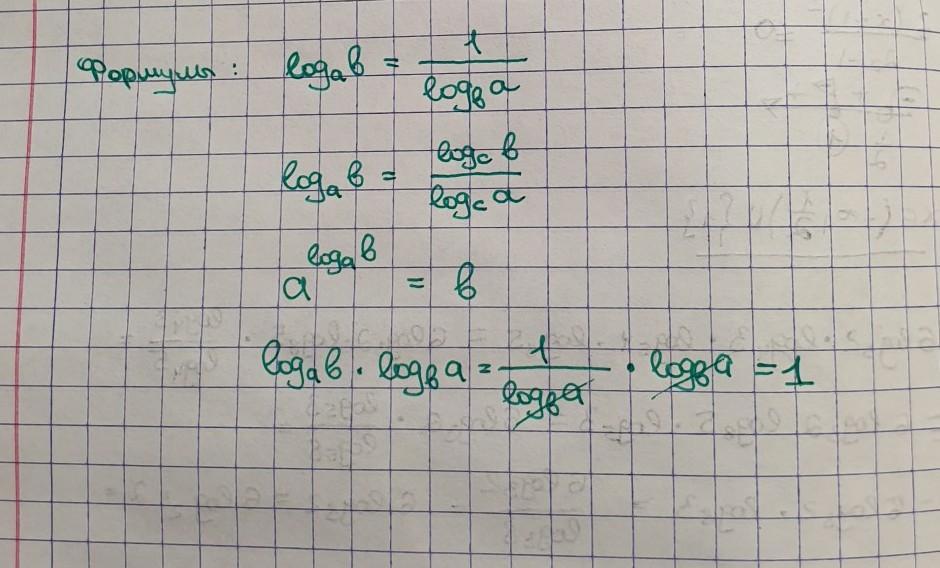 Формулы: logₐb = 1/log_b a
logₐb = log_c b/log_c a
a^(logₐb) = b
logₐb · log_b a = 1/log_b a · log_b a = 1